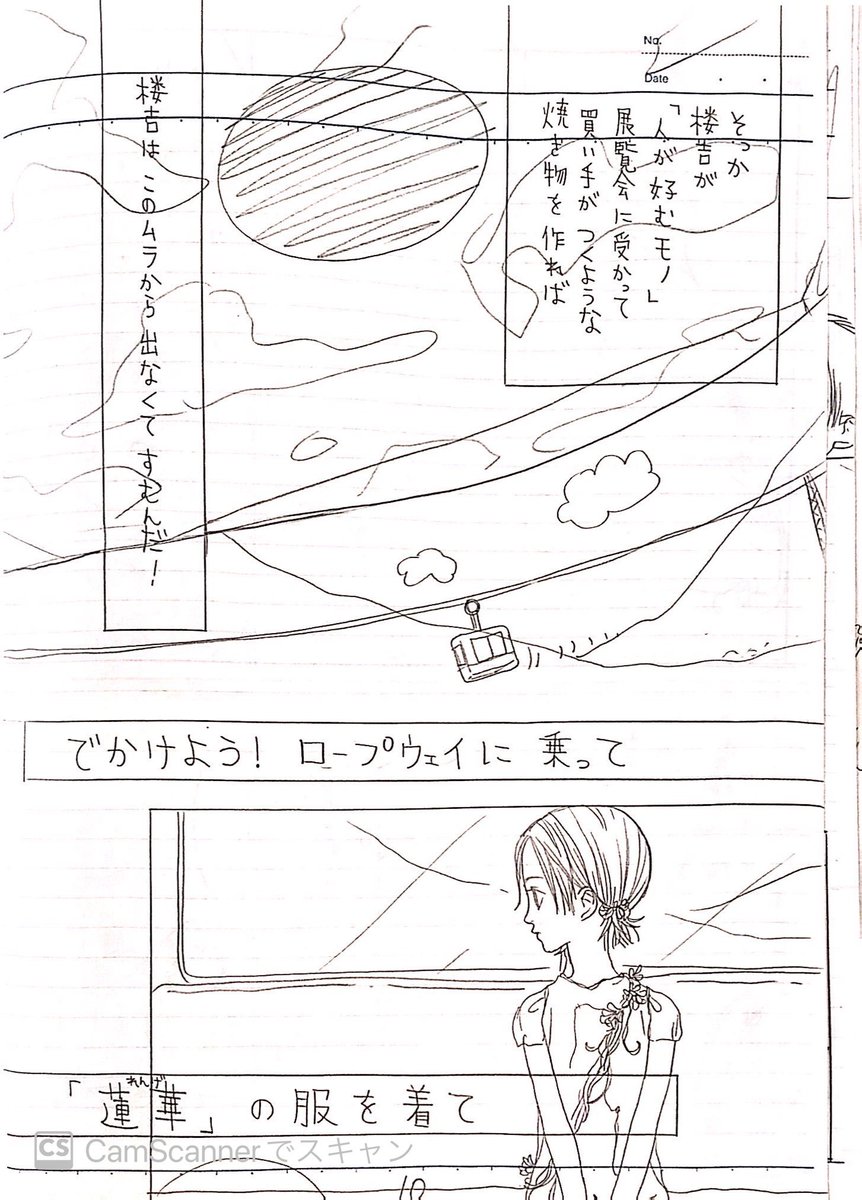 No.
Date
そっか
楼吉が
「人が好むモノ」
展覧会に受かって
買い手がつくような
焼き物を作れば
楼吉は このムラから 出なくて すむんだ!
でかけよう! ロープウェイに 乗って
れんげ
「蓮華」の服を着て
CS CamScannerでスキャン